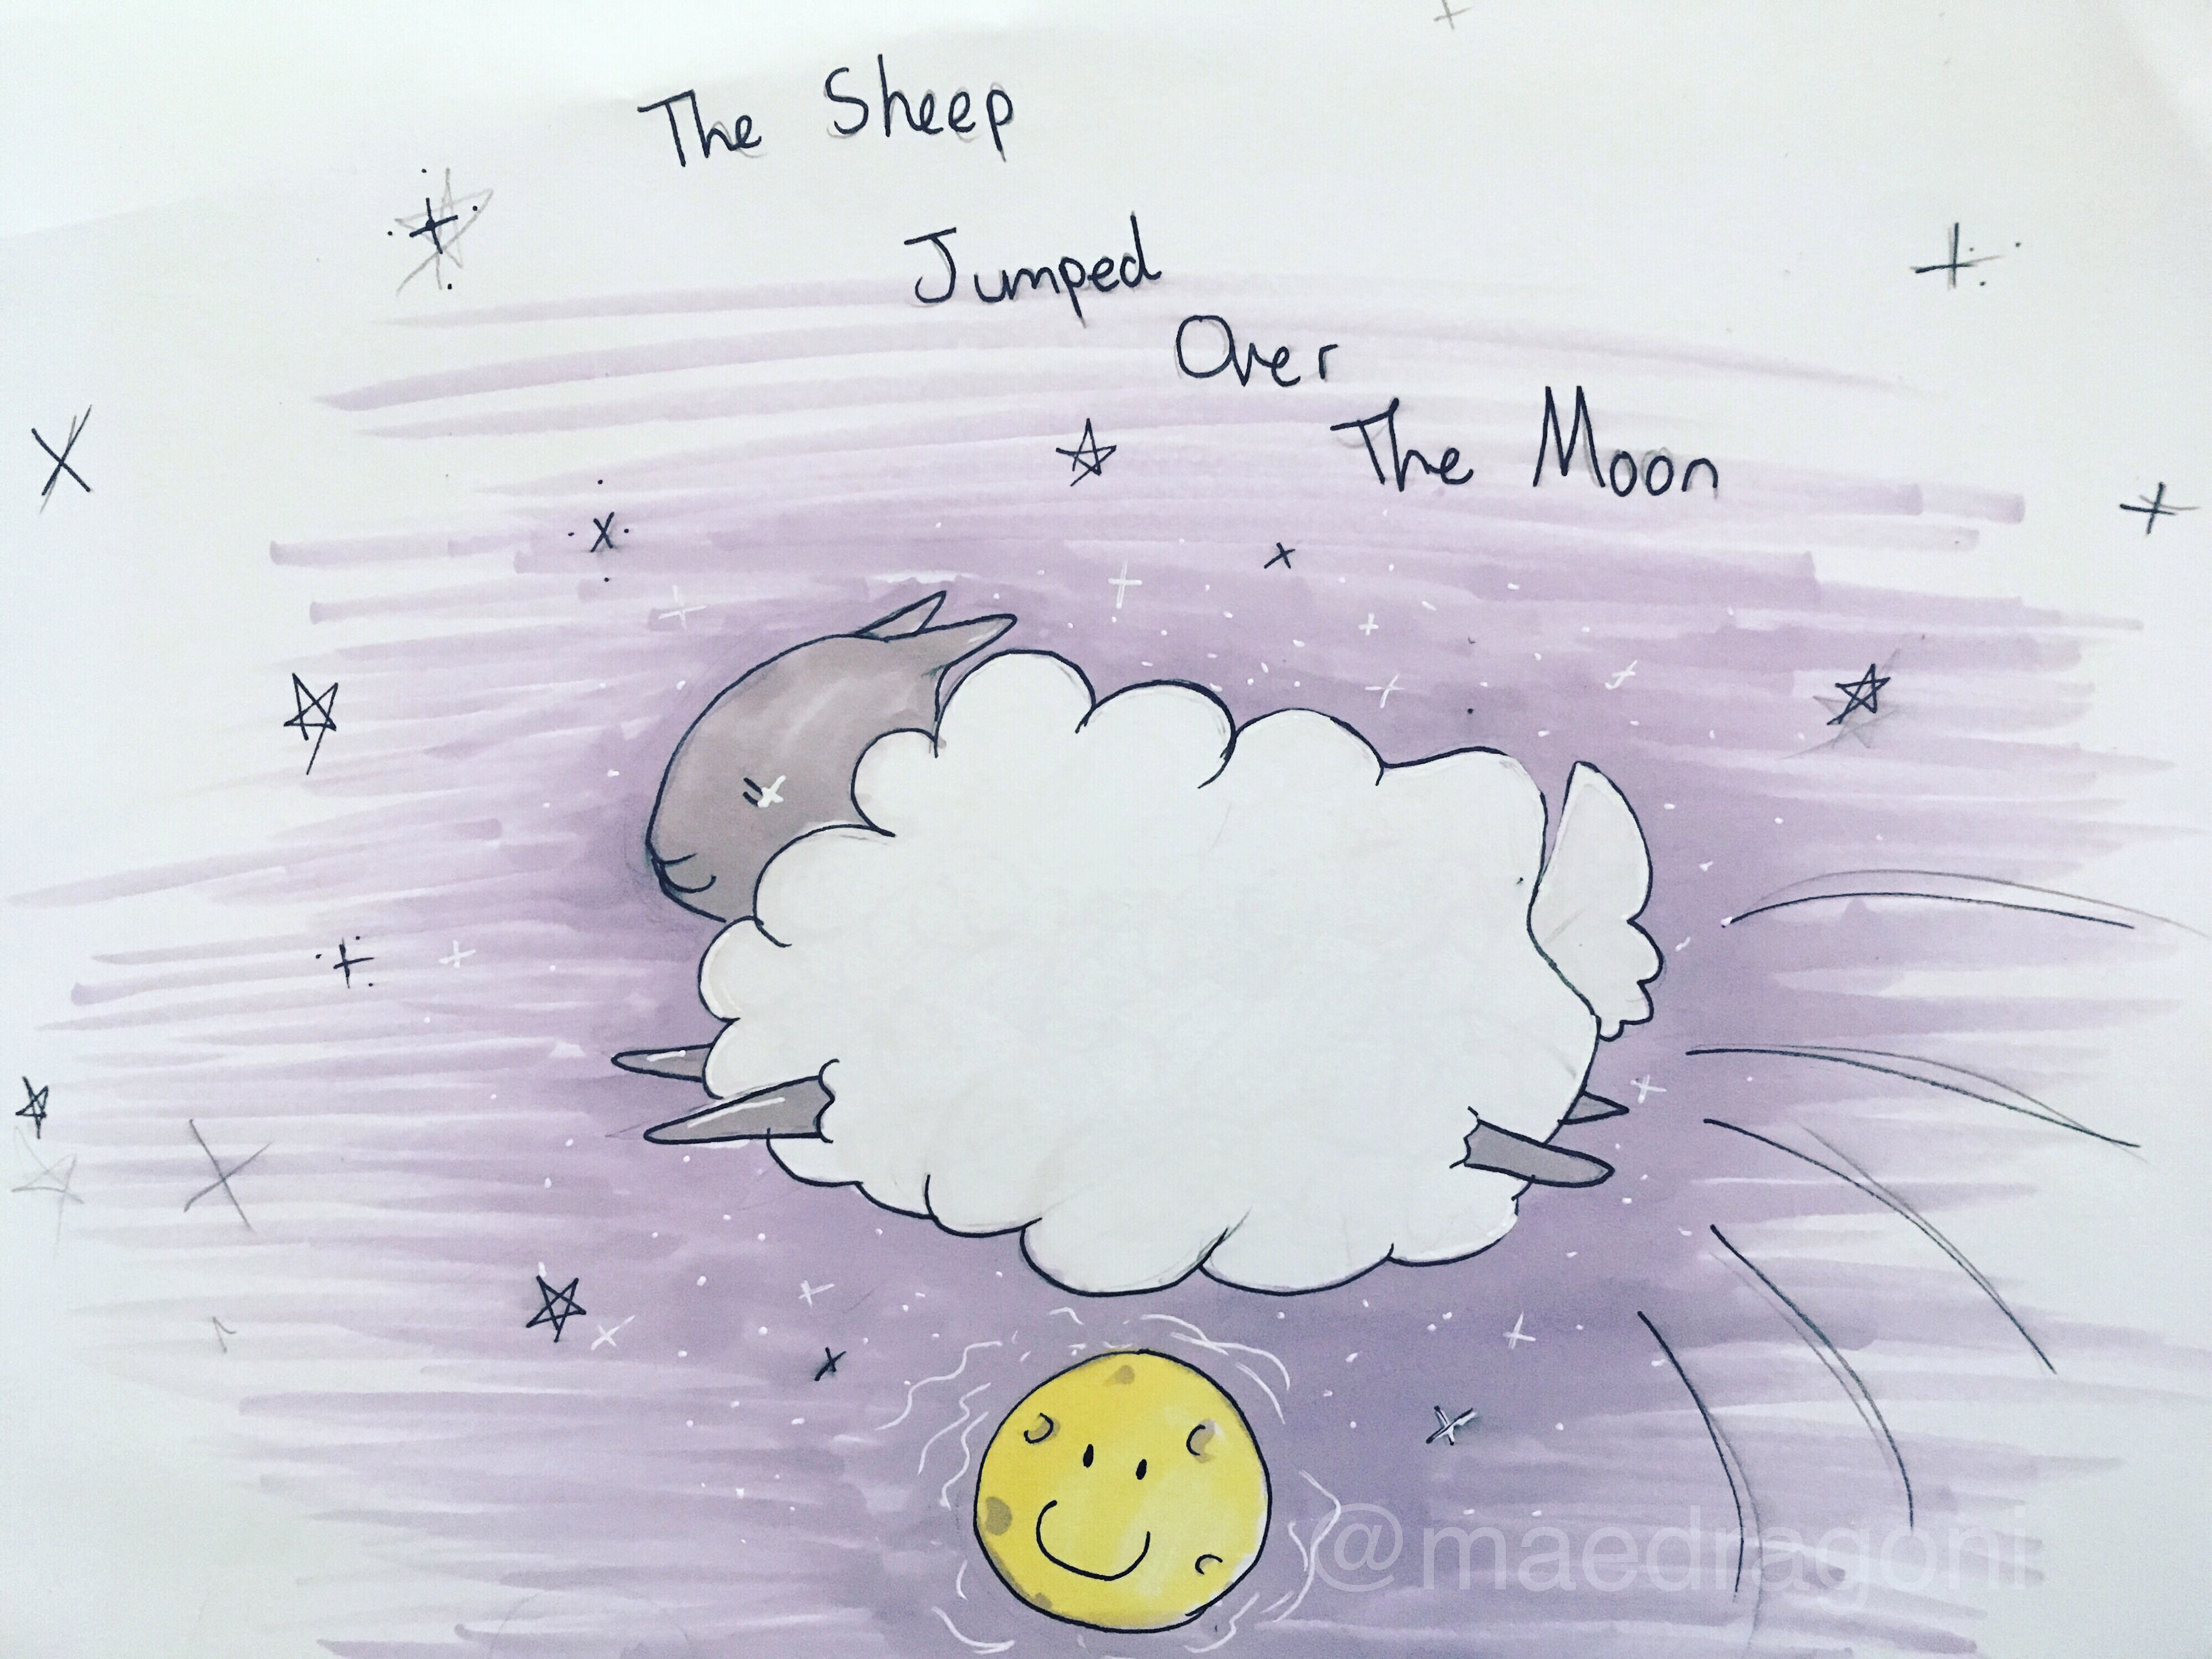 The Sheep
Jumped
Over
The Moon
@maedragoni